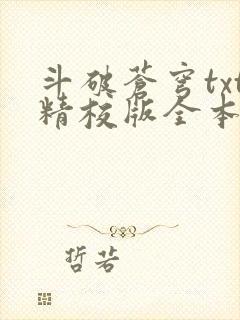 斗破苍穹txt
精校版全本
哲若